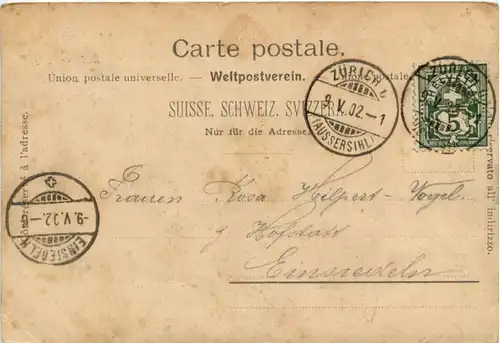 Carte postale.
Union postale universelle. — Weltpostverein. — postale
SUISSE. SCHWEIZ. SVIZZERA.
Nur für die Adresse.
à l'adresse.
servato all' indirizzo.
ZÜRICH
V. 02.–1
(AUSSERSIHL)
ZÜRICH
HELVETIA
5
-9.V.02.–
EINSIEDELN
Frauen Rosa Hilpert-Vogel.
Hofstatt
Einsiedeln